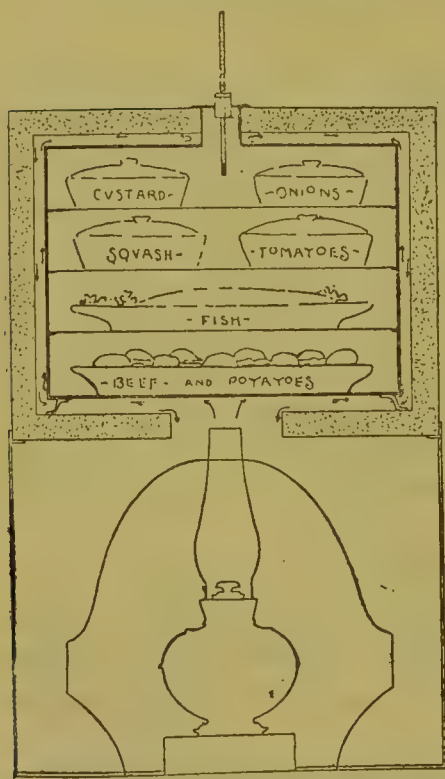 CUSTARD-
-ONIONS-
SQUASH-
-TOMATOES-
-FISH-
-BEEF- AND POTATOES